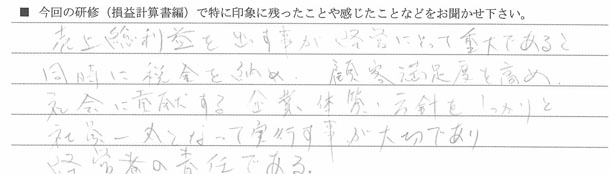 ■ 今回の研修（損益計算書編）で特に印象に残ったことや感じたことなどをお聞かせ下さい。
売上総利益を出す事が経営にとって重大であると
同時に税金を納め、顧客満足度を高め、
社会に貢献する企業体質・方針をしっかりと
社員一丸となって実行する事が大切であり
経営者の責任である。